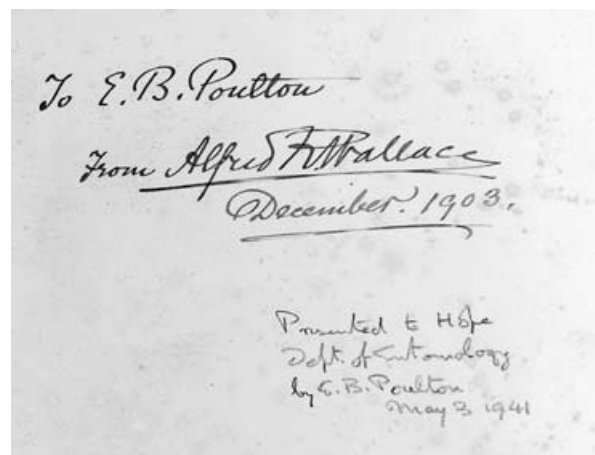 To E.B. Poulton
From Alfred R Wallace
December. 1903.
Presented to Hope
Dept. of Entomology
by E.B. Poulton
May 3 1941